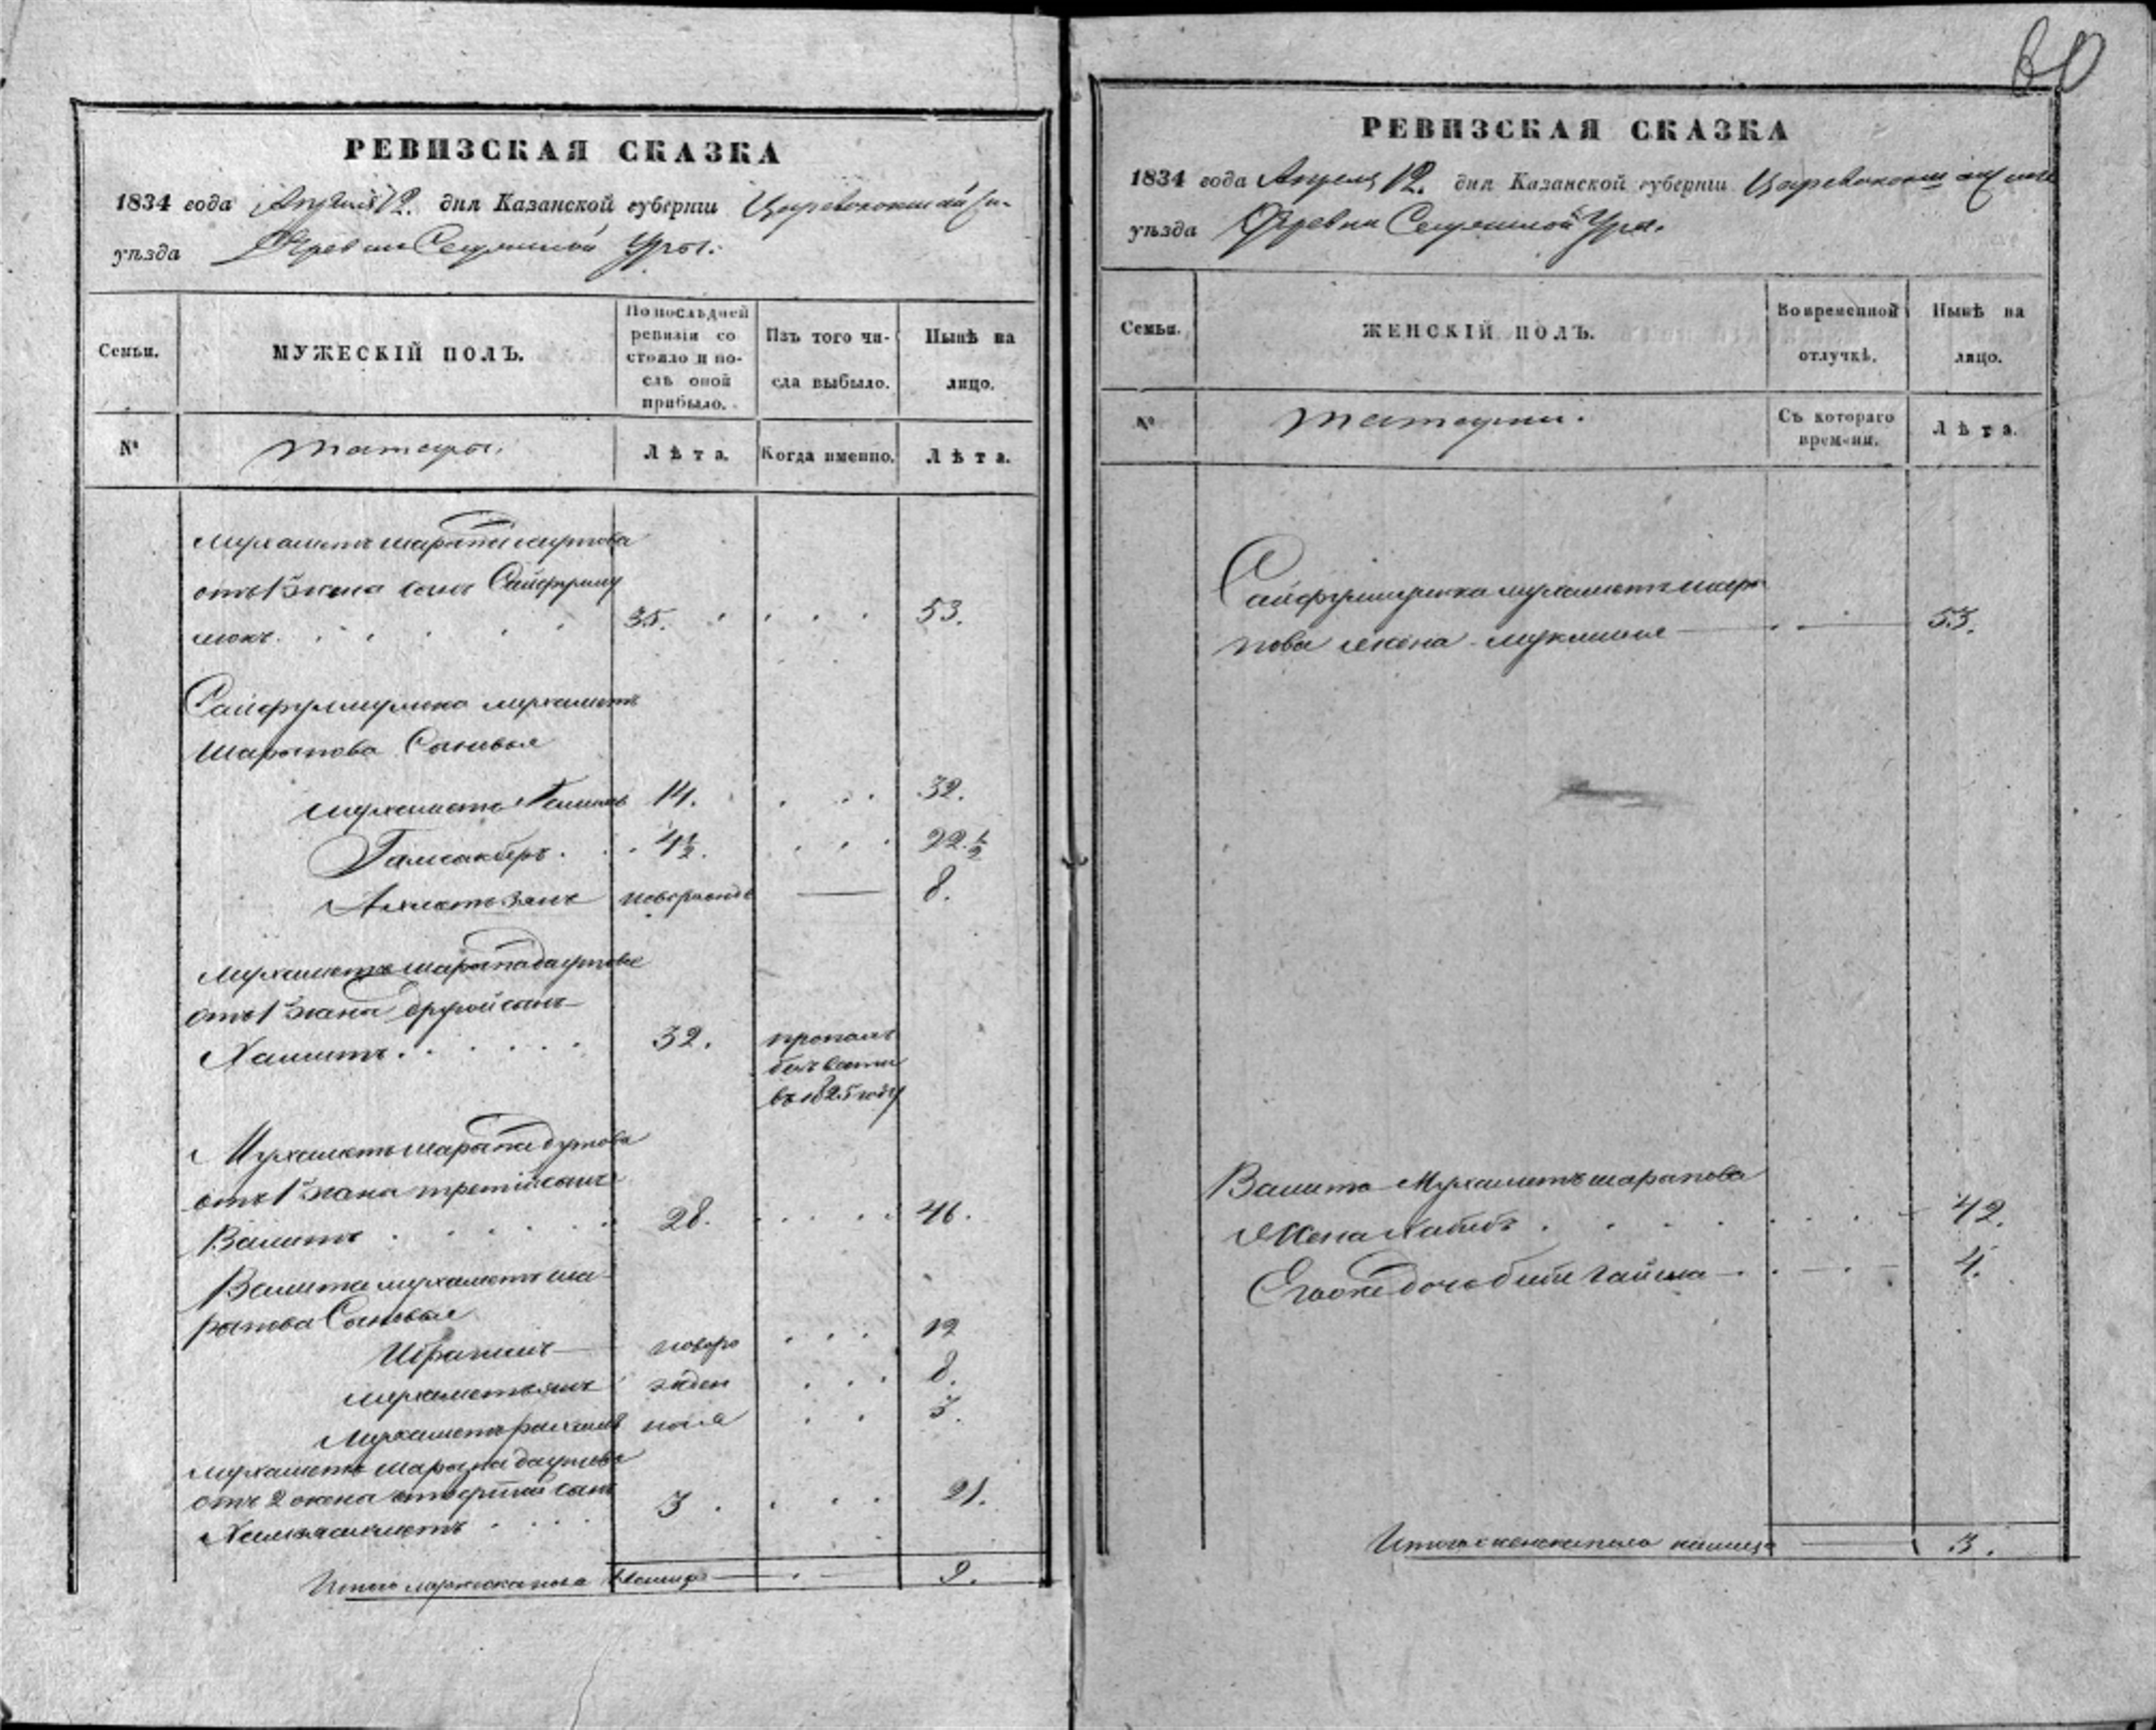 60
РЕВИЗСКАЯ СКАЗКА
1834 года Апреля 12. дня Казанской губерніи Царевококшайска-
уѣзда Деревни Уры.
Семьи.
МУЖЕСКІЙ ПОЛЪ.
По послѣдней
ревизіи со
стояло и по-
слѣ оной
прибыло.
Изъ того чи-
сла выбыло.
Нынѣ на
лицо.
№
татары.
Лѣта.
Когда именно.
Лѣта.
Мухаметь шарыпа Даутова
отъ 1й жены сынъ Сайфулму
люкъ. 35. 53.
Сайфулмулюка мухаметь
Шарыпова Сыновья
Мухаметь 14. 32.
Галиакберъ. 4½. 22.½
Ахметьзянъ новорожд 8.
Мухаметь шарыпа даутова
отъ 1й жены другой сынъ
Хамитъ. 32. пропалъ
безъ вести
въ 1825 году
Мухаметь шарыпа дутова
отъ 1й жены третій сынъ
Валитъ 28. 46.
Валита мухаметь ша
рыпова Сыновья
Ибрагимъ новоро 12
мухаметьянъ жден 8.
Мухаметьрахимъ ныя 3.
Мухаметь шарыпа даутова
отъ 2 жены четвертый сынъ
3. 21.
Итого мужеска пола налицо 9.
РЕВИЗСКАЯ СКАЗКА
1834 года Апреля 12. дня Казанской губерніи Царевококшайска
уѣзда Деревни Уры.
Семьи.
ЖЕНСКІЙ ПОЛЪ.
Во временной
отлучкѣ.
Нынѣ на
лицо.
№
татарки.
Съ котораго
времени.
Лѣта.
Сайфулмулюка мухаметь шары
пова жена 53.
Валита Мухаметь шарыпова
Жена 42.
Его же дочь биби 4.
Итого женска пола налицо 3.